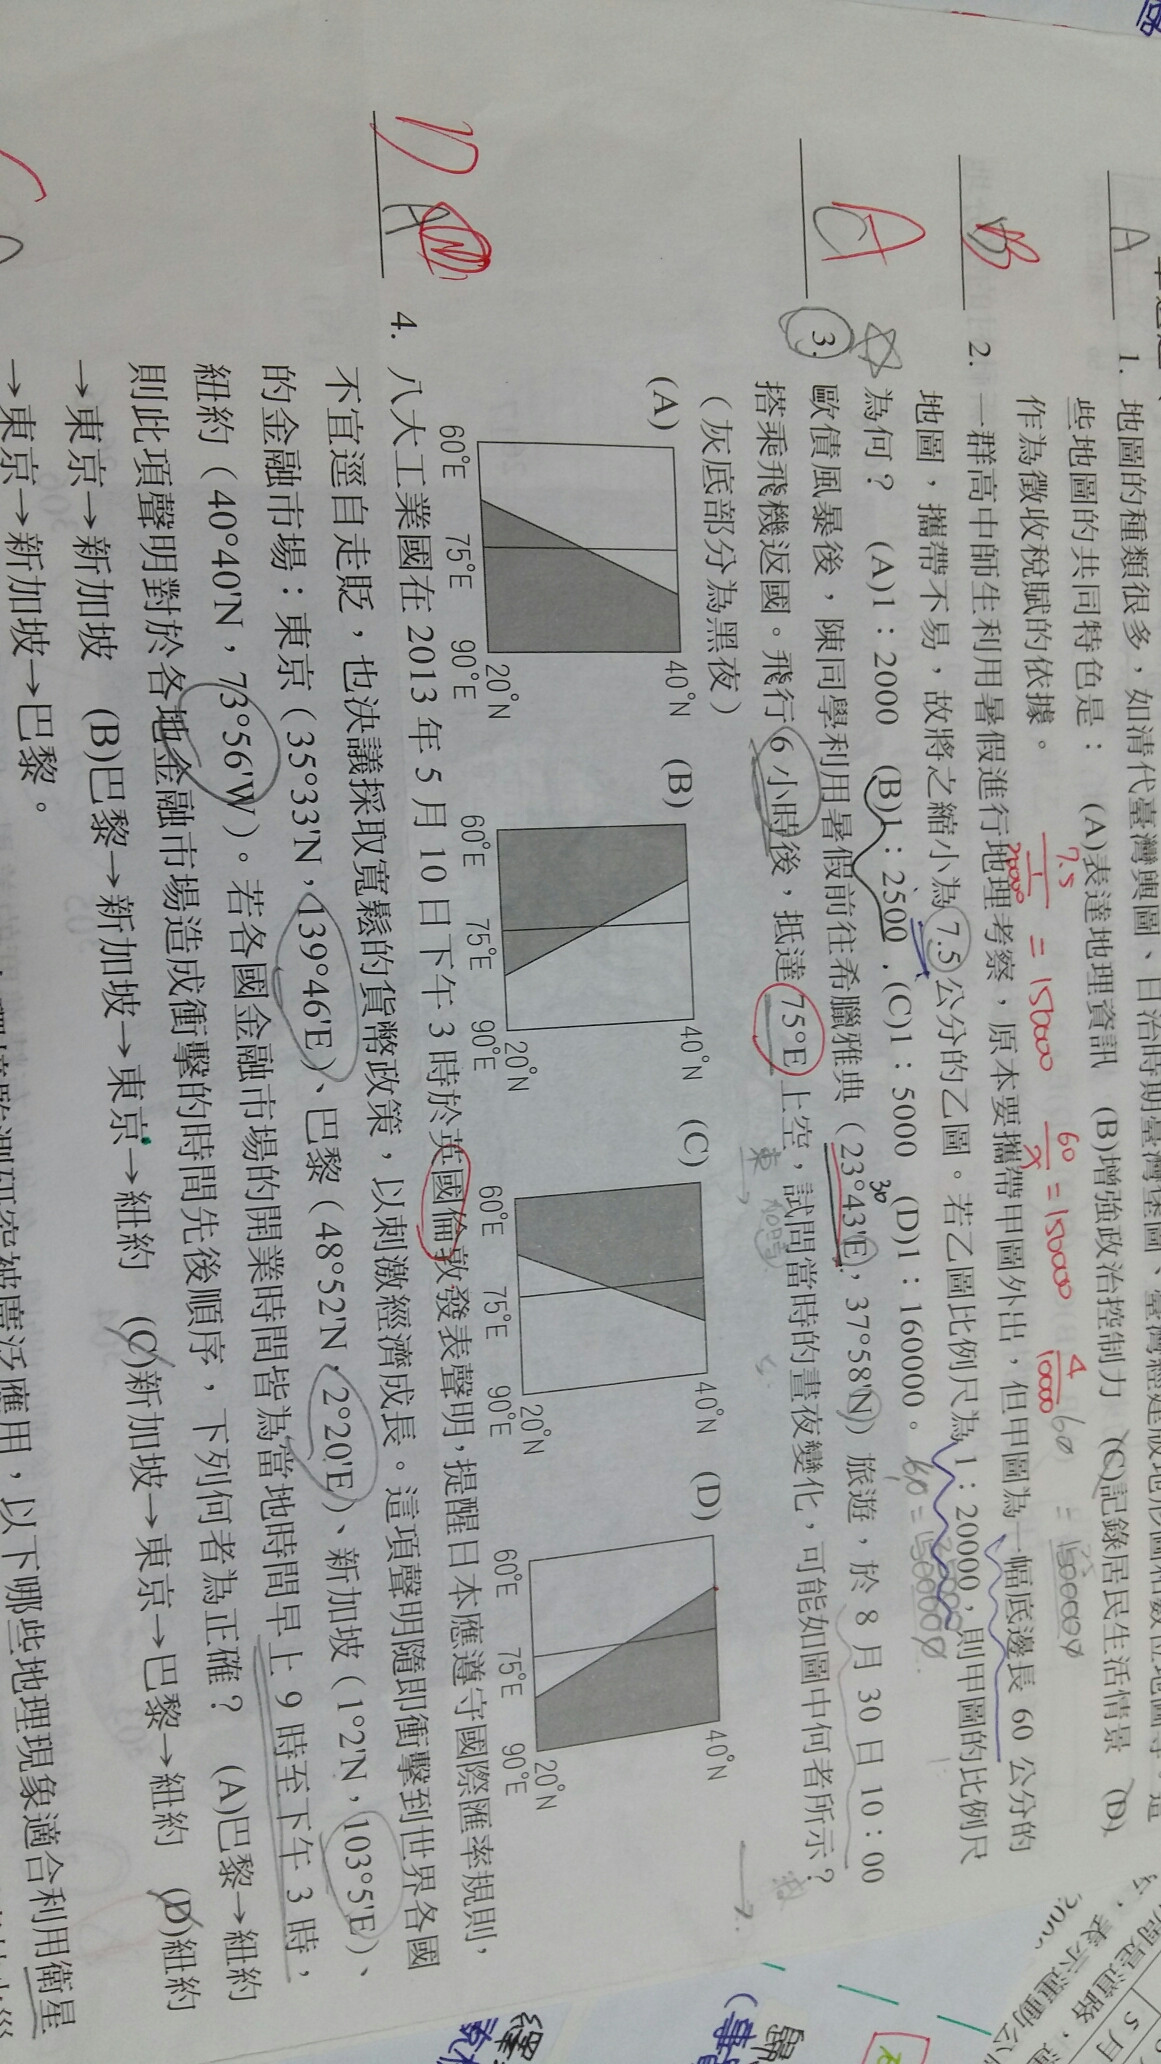 A
1. 地圖的種類很多，如清代臺灣輿圖、日治時期臺灣堡圖、臺灣經建版地形圖和數位地圖等。這
些地圖的共同特色是： (A)表達地理資訊 (B)增強政治控制力 (C)記錄居民生活情景 (D)
作為徵收稅賦的依據。
B
2. 一群高中師生利用暑假進行地理考察，原本要攜帶甲圖外出，但甲圖為一幅底邊長 60 公分的
地圖，攜帶不易，故將之縮小為 7.5 公分的乙圖。若乙圖比例尺為 1：20000，則甲圖的比例尺
為何？ (A)1：2000 (B)1：2500 (C)1：5000 (D)1：160000。
3. 歐債風暴後，陳同學利用暑假前往希臘雅典（23°43'E，37°58'N）旅遊，於 8 月 30 日 10：00
搭乘飛機返國。飛行 6 小時後，抵達 75°E 上空，試問當時的晝夜變化，可能如圖中何者所示？
（灰底部分為黑夜）
(A) 40°N 20°N 60°E 75°E 90°E
(B) 40°N 20°N 60°E 75°E 90°E
(C) 40°N 20°N 60°E 75°E 90°E
(D) 40°N 20°N 60°E 75°E 90°E
D
4. 八大工業國在 2013 年 5 月 10 日下午 3 時於英國倫敦發表聲明，提醒日本應遵守國際匯率規則，
不宜逕自走貶，也決議採取寬鬆的貨幣政策，以刺激經濟成長。這項聲明隨即衝擊到世界各國
的金融市場：東京（35°33'N，139°46'E）、巴黎（48°52'N，2°20'E）、新加坡（1°2'N，103°5'E）、
紐約（40°40'N，73°56'W）。若各國金融市場的開業時間皆為當地時間早上 9 時至下午 3 時，
則此項聲明對於各地金融市場造成衝擊的時間先後順序，下列何者為正確？ (A)巴黎→紐約
→東京→新加坡 (B)巴黎→新加坡→東京→紐約 (C)新加坡→東京→巴黎→紐約 (D)紐約
→東京→新加坡→巴黎。
以下哪些地理現象適合利用衛星